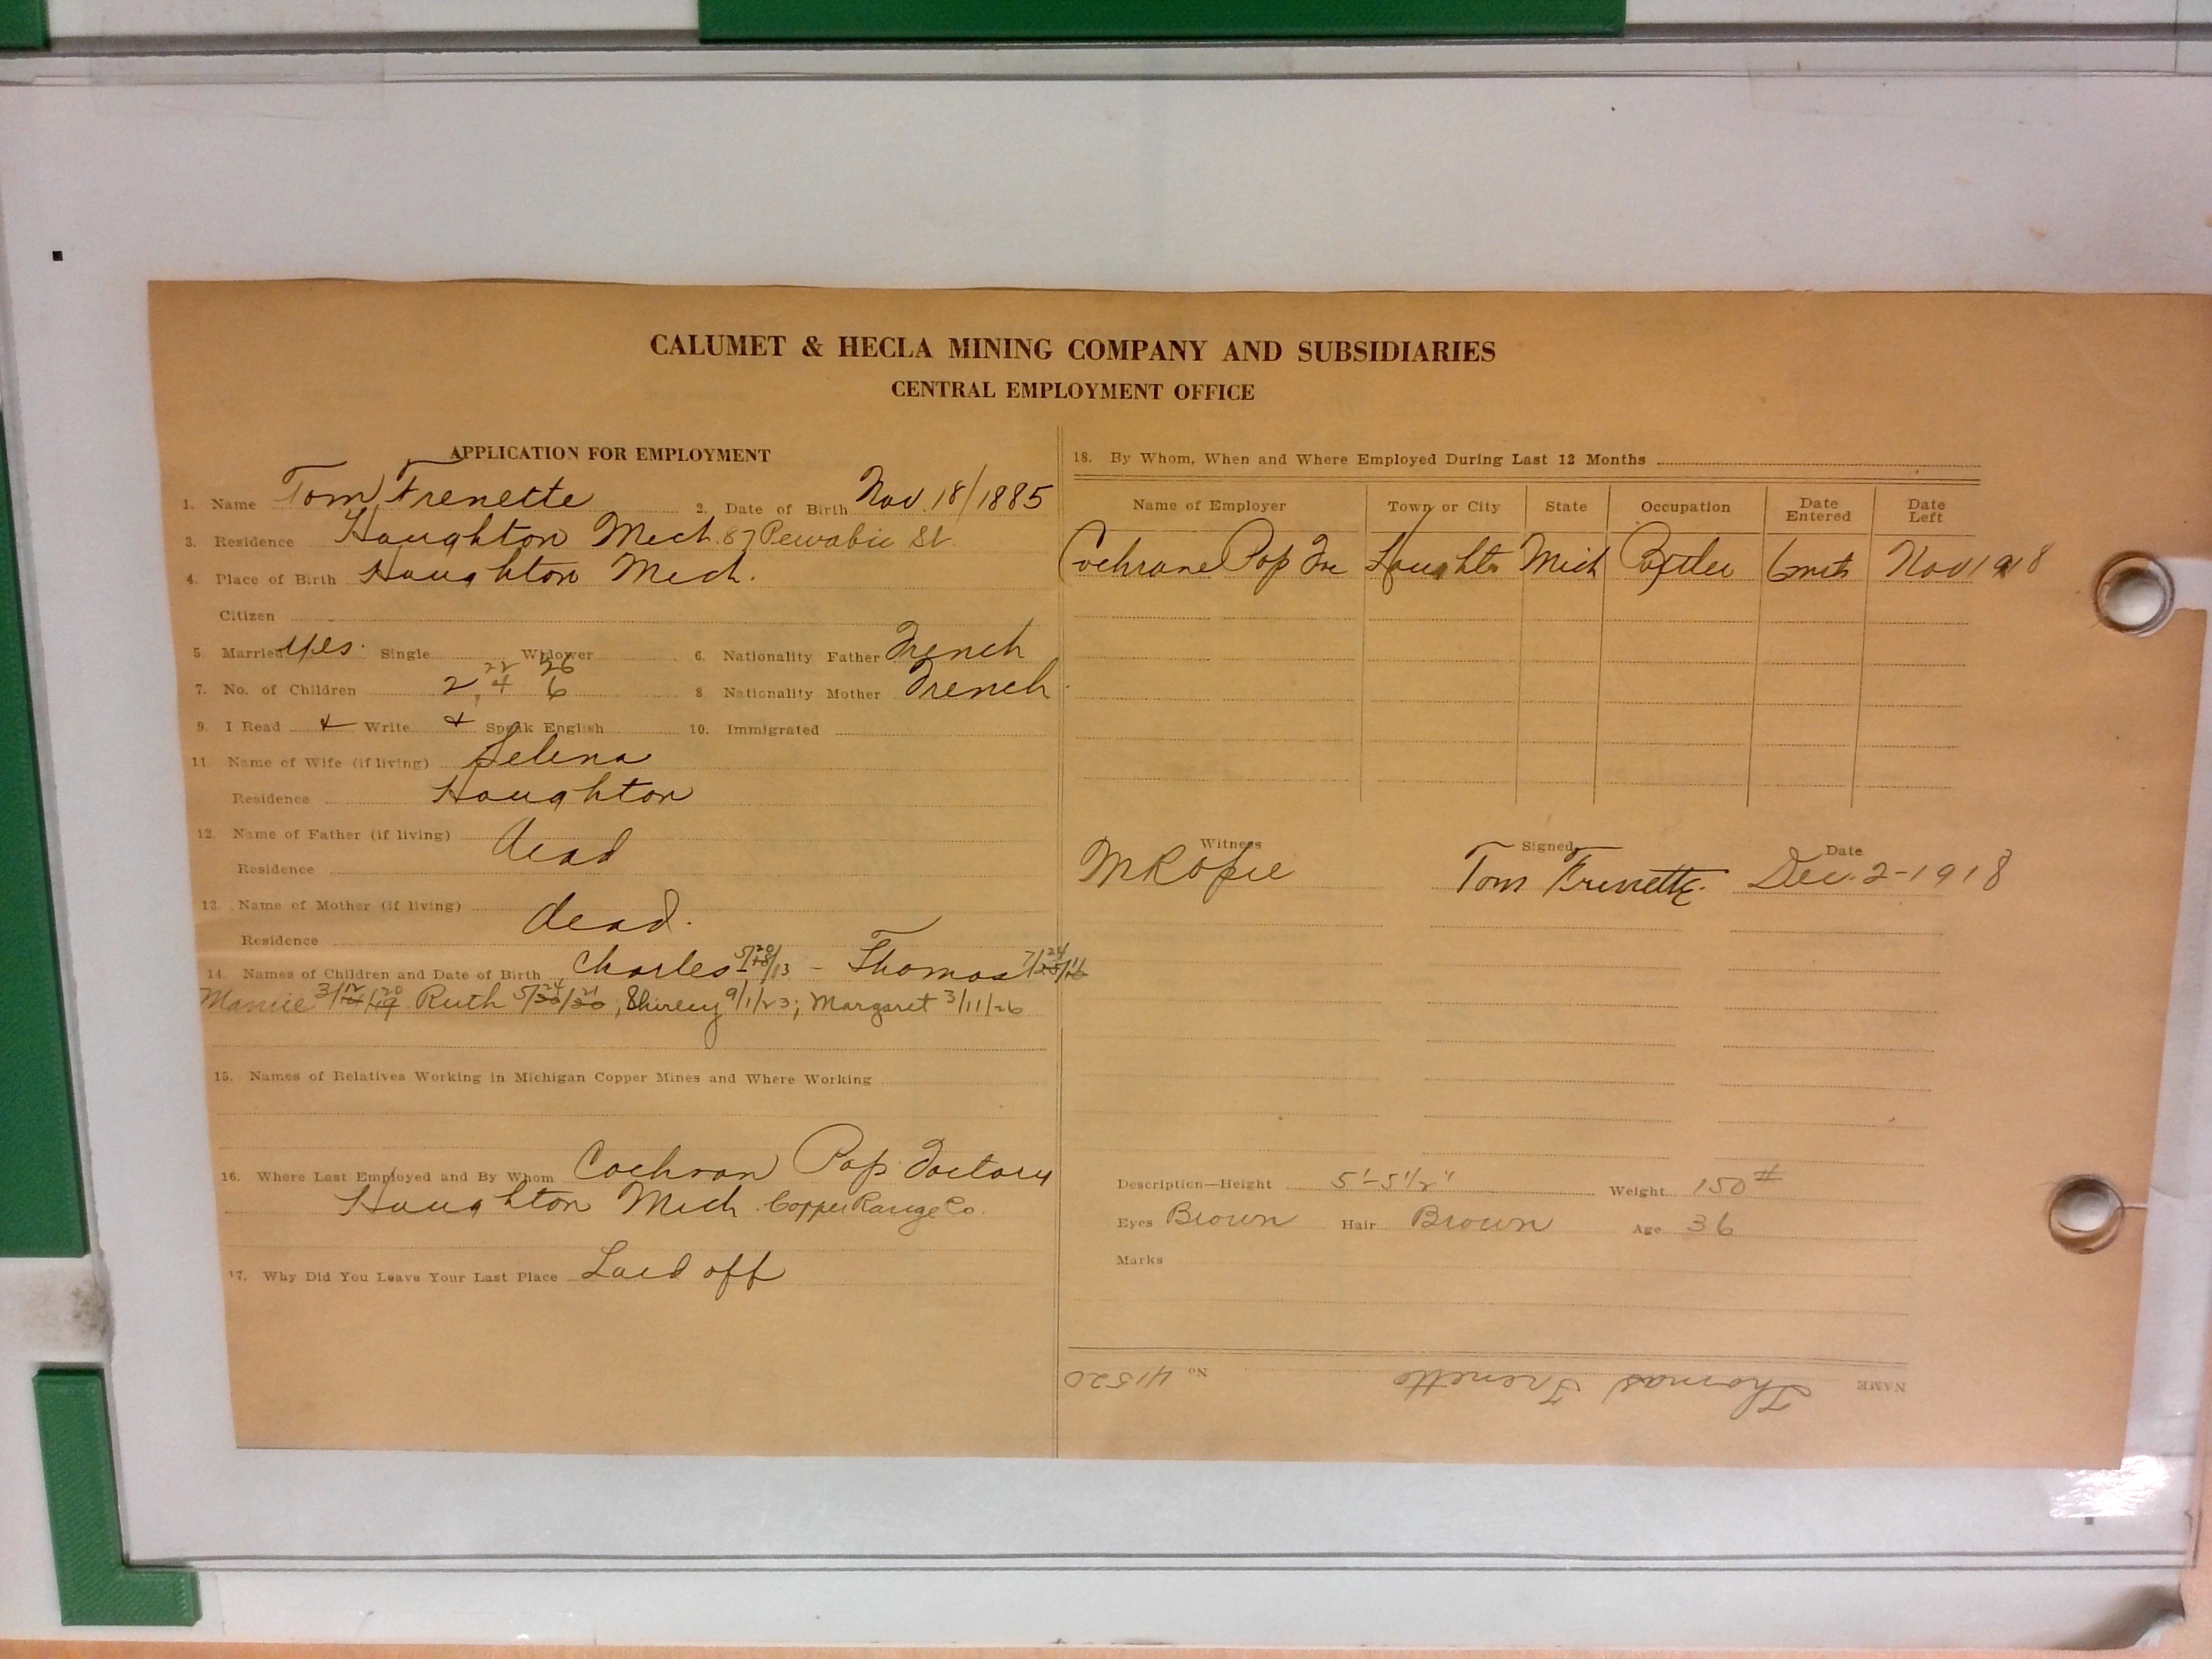 CALUMET & HECLA MINING COMPANY AND SUBSIDIARIES
CENTRAL EMPLOYMENT OFFICE
APPLICATION FOR EMPLOYMENT
1. Name Tom Frenette 2. Date of Birth Nov. 18/1885
3. Residence Houghton Mich. 87 Pewabic St.
4. Place of Birth Houghton Mich.
Citizen
5. Married yes. Single Widower 6. Nationality Father French
22 26
7. No. of Children 2, 4 6 8 Nationality Mother French
9. I Read + Write + Speak English 10. Immigrated
11. Name of Wife (if living) Selena
Residence Houghton
12. Name of Father (if living) dead
Residence
13. Name of Mother (if living) dead.
Residence
14. Names of Children and Date of Birth Charles 5/20/13 - Thomas 7/24
Mamie 3/12/20 Ruth 5/24/21, Shirley 9/1/23; Margaret 3/11/26
15. Names of Relatives Working in Michigan Copper Mines and Where Working
16. Where Last Employed and By Whom Cochran Pop Factory
Houghton Mich. Copper Range Co.
17. Why Did You Leave Your Last Place Laid off
18. By Whom, When and Where Employed During Last 12 Months
Name of Employer Town or City State Occupation Date Entered Date Left
Cochrane Pop Houghton Mich Bottler 6 mts Nov 1918
Witness Signed Date
M R Opie Tom Frenette Dec. 2-1918
Description—Height 5'-5 1/2" Weight 150#
Eyes Brown Hair Brown Age 36
Marks
NAME Thomas Frenette No 41520